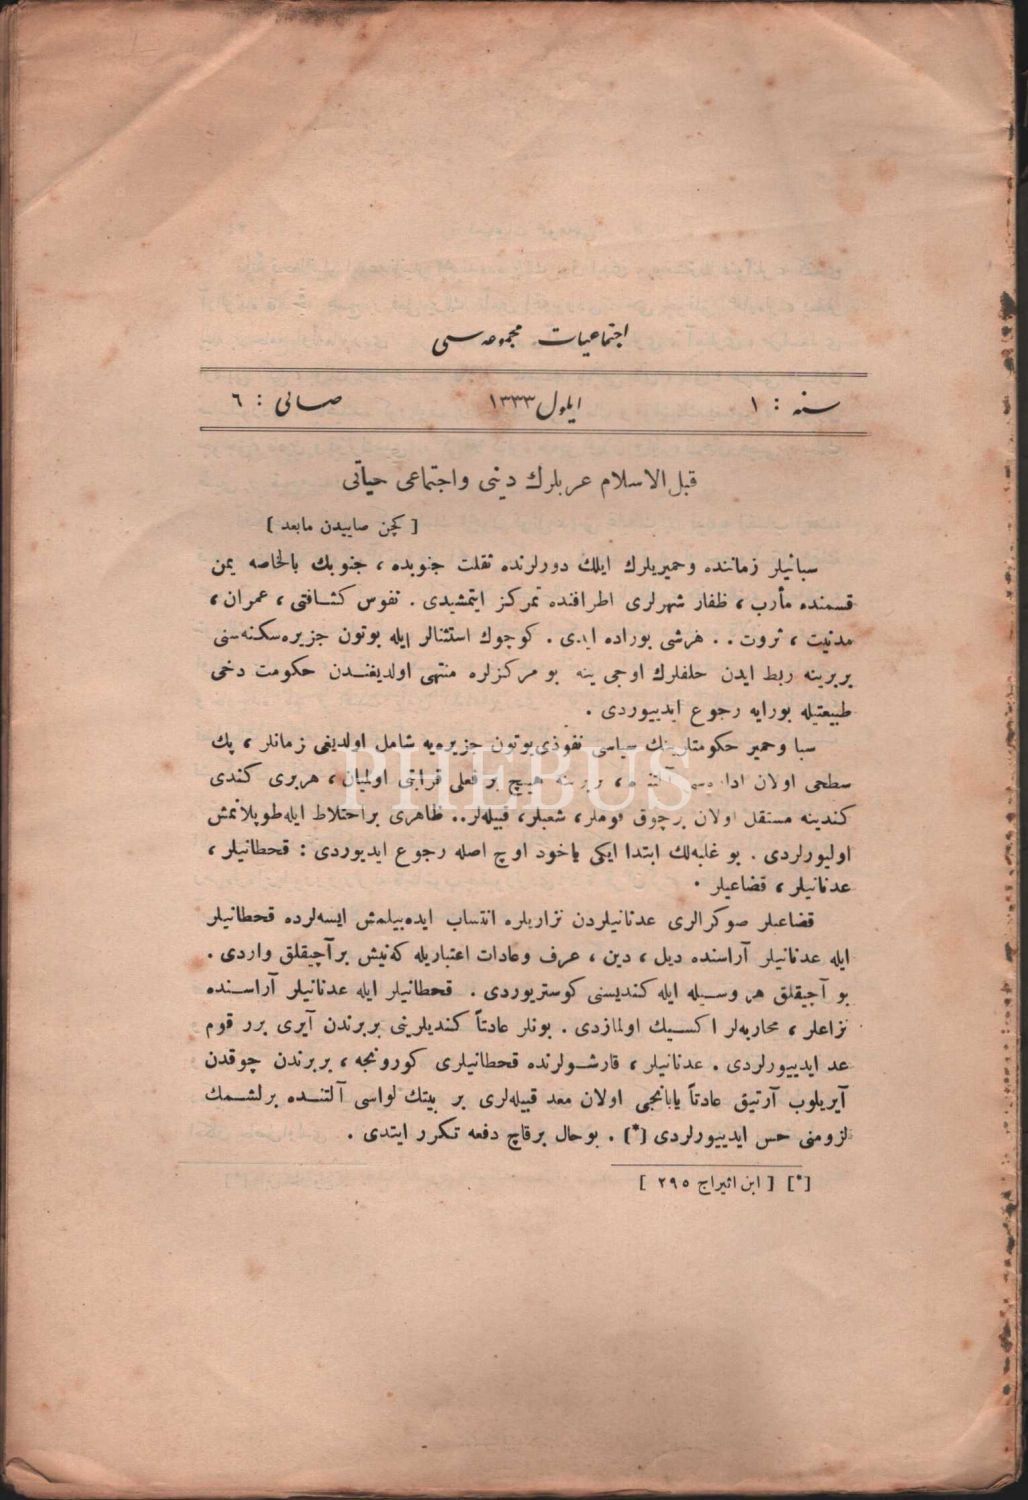 اجتماعيات مجموعه‌سى
سنه : ١ ايلول ١٣٣٣ صائى : ٦
قبل الاسلام عربلرك دينى واجتماعى حياتى
[ كچن صاييدن مابعد ]
سبائيلر زماننده وحميريلرك ايلك دورلرنده ثقلت جنوبده ، جنوبك بالخاصه يمن
قسمنده مأرب ، ظفار شهرلرى اطرافنده تمركز ايتمشيدى . نفوس كثافتى ، عمران ،
مدنيت ، ثروت . . هرشى بوراده ايدى . كوچوك استثنالر ايله بوتون جزيره سكنه‌سنى
بربرينه ربط ايدن حلفلرك اوجى ينه بو مركزلره منتهى اولديغندن حكومت دخى
طبيعتيله بورايه رجوع ايدييوردى .
سبا وحمير حكومتلرينك سياسى نفوذى بوتون جزيره‌يه شامل اولديغى زمانلر ، پك
سطحى اولان هيچ بر فعلى قرابتى اولميان ، هربرى كندى
كندينه مستقل اولان برچوق قوملر ، شعبلر ، قبيله‌لر .. ظاهرى براختلاط ايله طوپلانمش
اوليورلردى . بو غلبه‌لك ابتدا ايكى ياخود اوچ اصله رجوع ايديوردى : قحطانيلر ،
عدنانيلر ، قضاعيلر .
قضاعيلر صوكرالرى عدنانيلردن نزاريلره انتساب ايده‌بيلمش ايسه‌لرده قحطانيلر
ايله عدنانيلر آراسنده ديل ، دين ، عرف وعادات اعتباريله كه‌نيش برآچيقلق واردى .
بو آچيقلق هر وسيله ايله كنديسنى كوستريوردى . قحطانيلر ايله عدنانيلر آراسنده
نزاعلر ، محاربه‌لر اكسيك اولمازدى . بونلر عادتاً كنديلرينى بربرندن آيرى برر قوم
عد ايدييورلردى . عدنانيلر ، قارشولرنده قحطانيلرى كورونجه ، بربرندن چوقدن
آيريلوب آرتيق عادتاً يابانجى اولان معد قبيله‌لرى بر بيتك لواسى آلتنده برلشمك
لزومنى حس ايدييورلردى [*] . بوحال برقاچ دفعه تكرر ايتدى .
[*] [ ابن اثيراج ٢٩٥ ]
PHEBUS